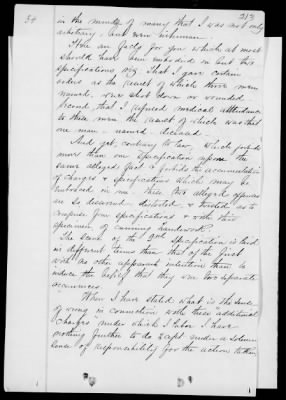 34
213
in the minds of many that I was not only
arbitrary, but even inhuman.
These are facts for you which at most
should have been embodied in but two
specifications, viz, That I gave certain
orders as the result of which three men
named, were shot down or wounded,
second that I refused medical attendance
to these men the result of which was that
one man - named - deceased -
And yet, contrary to law, which forbids
more than one specification upon the
same alleged fact & forbids the accumulation
of charges & specifications which may be
embraced in one - these two alleged offences
are so decorned - distorted & twisted as to
compose four specifications &
specimen of cunning handiwork.
The scene of the 2nd Specification is laid
in different terms than that of the first
with no other apparent intention than to
induce the belief that they were two separate
occurrences.
When I have stated what is the truth
of wrong in connection with these "additional
charges" under which I labor I have
nothing further to do except under a solemn
sense of responsibility for the action taken,